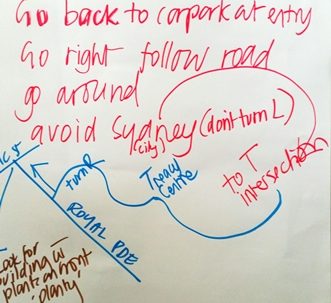 Go back to carpark at entry
Go right follow road
go around
avoid Sydney (don't turn L)
(city)
to T
intersection
Treacy
Centre
turn R
ROYAL PDE
Look for
building w
plants on front
planty